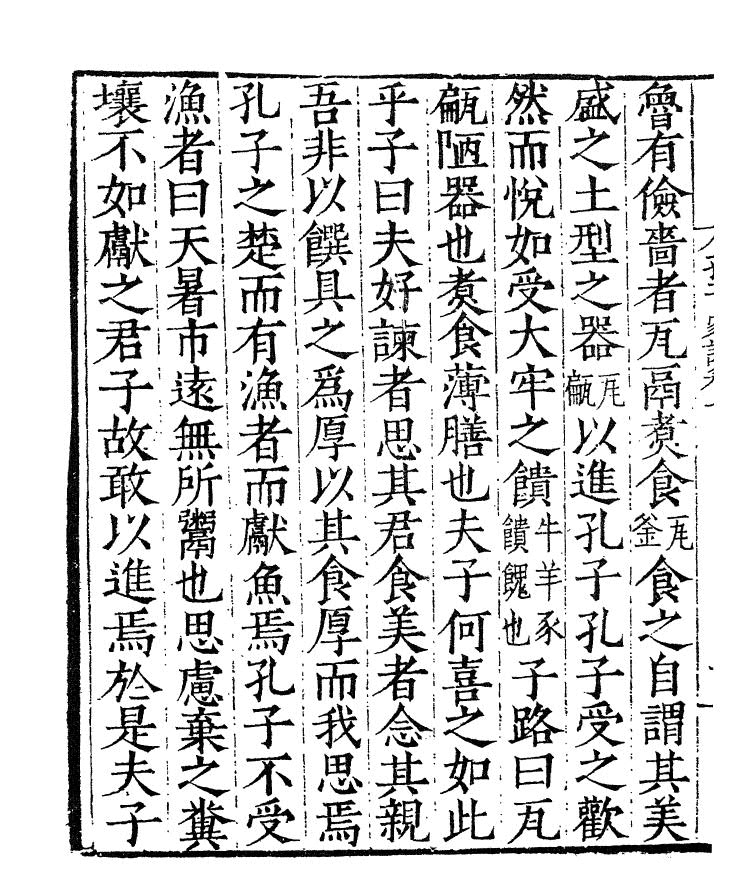 魯有儉嗇者瓦鬲煑食瓦釜食之自謂其美
盛之土型之器瓦甂以進孔子孔子受之歡
然而悅如受大牢之饋牛羊豕饋餽也子路曰瓦
甂陋器也煑食薄膳也夫子何喜之如此
乎子曰夫好諫者思其君食美者念其親
吾非以饌具之爲厚以其食厚而我思焉
孔子之楚而有漁者而獻魚焉孔子不受
漁者曰天暑市遠無所鬻也思慮棄之糞
壤不如獻之君子故敢以進焉於是夫子